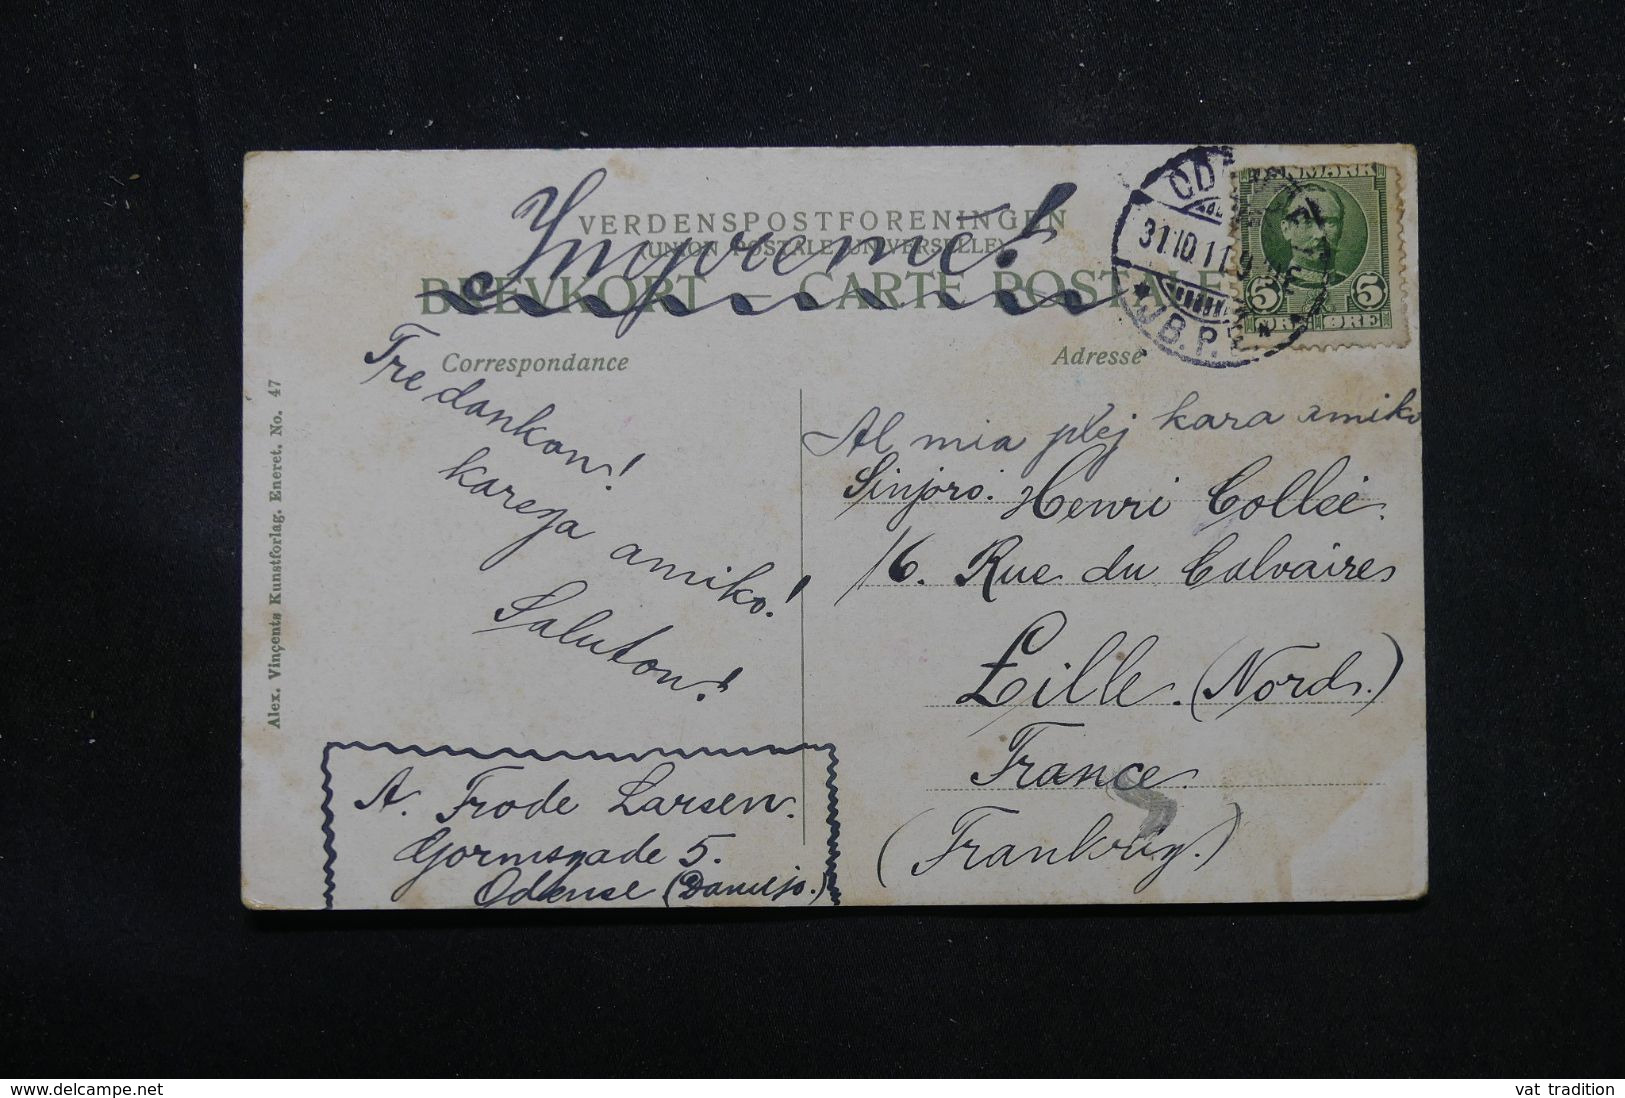 VERDENSPOSTFORENINGEN
(UNION POSTALE UNIVERSELLE)
BREVKORT — CARTE POSTALE
Correspondance
Adresse
DANMARK
5 5
ØRE ØRE
31.10.11
JB.P.E.
Tre dankon!
karega amiko!
Saluton!
A. Frode Larsen.
Gormsgade 5.
Odense (Danujo.)
Al mia plej kara amiko
Sinjoro. Henri Collée.
16. Rue du Calvaires
Lille. (Nord.)
France.
(Frankrig.)
Alex. Vinçents Kunstforlag. Eneret. No. 47
delcampe.net
vat tradition